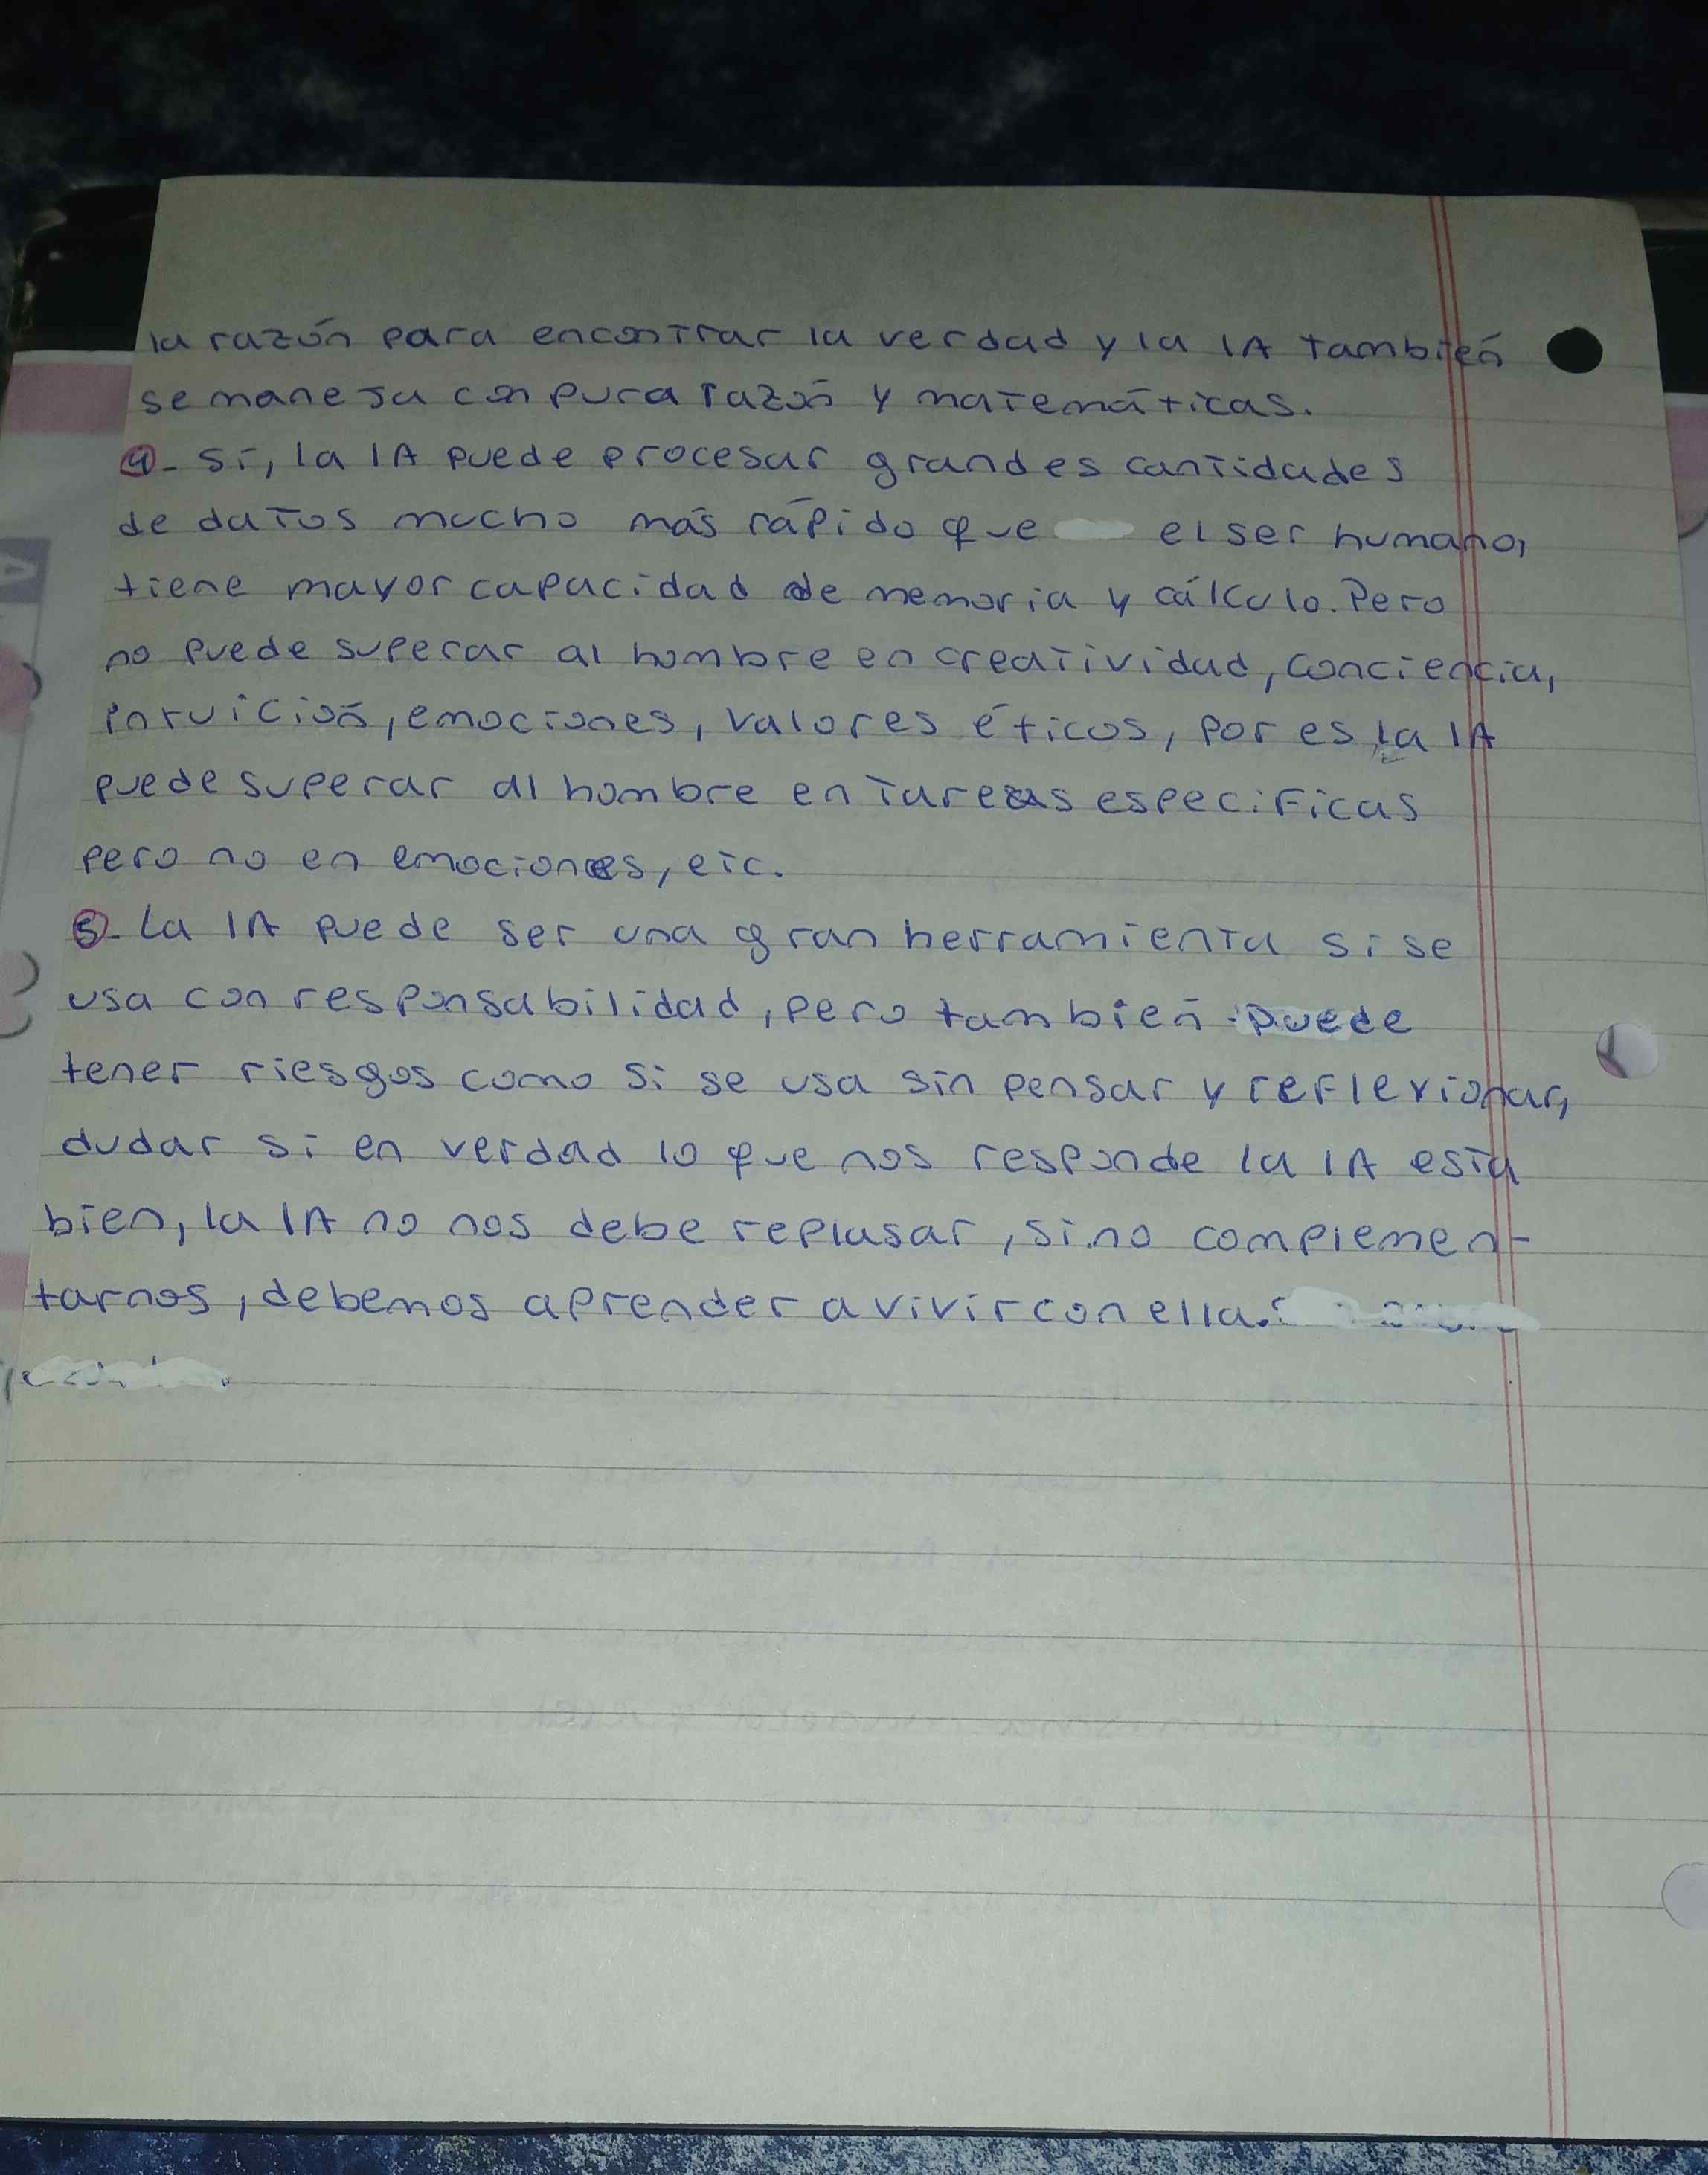 la razón para encontrar la verdad y la IA también
se maneja con pura razón y matemáticas.
4- Sí, la IA puede procesar grandes cantidades
de datos mucho más rápido que el ser humano,
tiene mayor capacidad de memoria y cálculo. Pero
no puede superar al hombre en creatividad, conciencia,
intuición, emociones, valores éticos, por es la IA
puede superar al hombre en tareas especificas
pero no en emociones, etc.
5- La IA puede ser una gran herramienta si se
usa con responsabilidad, pero también puede
tener riesgos como si se usa sin pensar y reflexionar,
dudar si en verdad lo que nos responde la IA esta
bien, la IA no nos debe replasar, sino complemen-
tarnos, debemos aprender a vivir con ella.